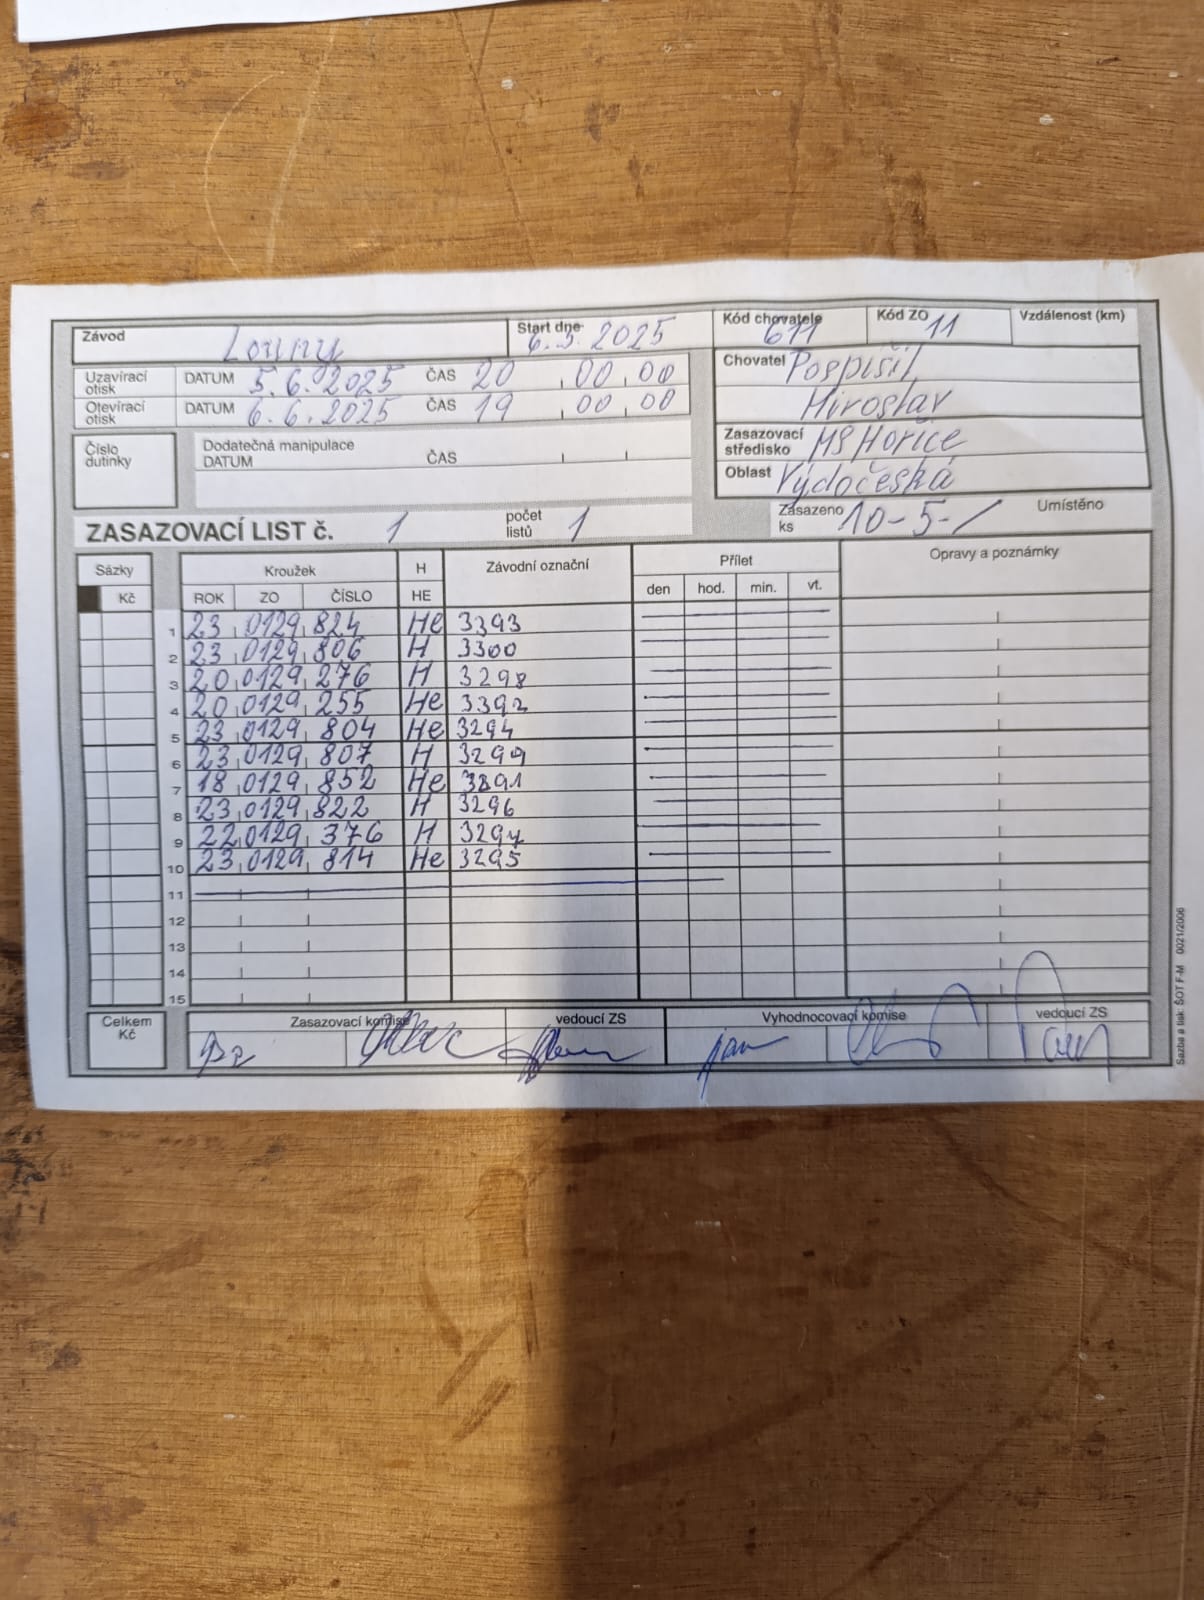 Závod Louny Start dne 6.5.2025 Kód chovatele 611 Kód ZO 11 Vzdálenost (km)
Uzavírací otisk DATUM 5.6.2025 ČAS 20 , 00 , 00
Otevírací otisk DATUM 6.6.2025 ČAS 19 00 , 00
Chovatel Pospíšil
Miroslav
Číslo dutinky Dodatečná manipulace
DATUM ČAS
Zasazovací středisko MS Hořice
Oblast Výdočeská
ZASAZOVACÍ LIST č. 1 počet listů 1 Zasazeno ks 10-5-1 Umístěno
Sázky Kroužek H Závodní označní Přílet Opravy a poznámky
Kč ROK ZO ČÍSLO HE den hod. min. vt.
1 23 0129 824 He 3393
2 23 0129 806 H 3300
3 20 0129 276 H 3298
4 20 0129 255 He 3392
5 23 0129 804 He 3294
6 23 0129 807 H 3299
7 18 0129 852 He
8 23 0129 822 H 3296
9 22 0129 376 H
10 23 0129 814 He 3295
11
12
13
14
15
Celkem Kč Zasazovací komise vedoucí ZS Vyhodnocovací komise vedoucí ZS
Sazba a tisk: ŠOT F-M 0021/2006